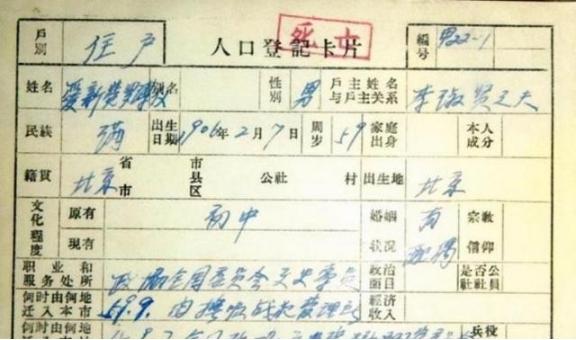 戶別 住戶 人口登記卡片 死亡 編号 男22-1
姓名 愛新覺羅溥儀 別名 性別 男 戶主姓名与戶主关系 李淑贤之夫
民族 满 出生日期 1906年2月7日 周岁 59 家庭出身 本人成分
籍貫 北京 省市 市县区 公社 村 出生地 北京
文化程度 原有 初中 婚姻状况 有配偶 宗教信仰
現有
职业和服务处所 政协全国委员会文史专员 政治面目 是否公社社員
何时由何地迁入本市 59.9. 由抚顺战犯管理所 經济收入
何时由何地 兵役